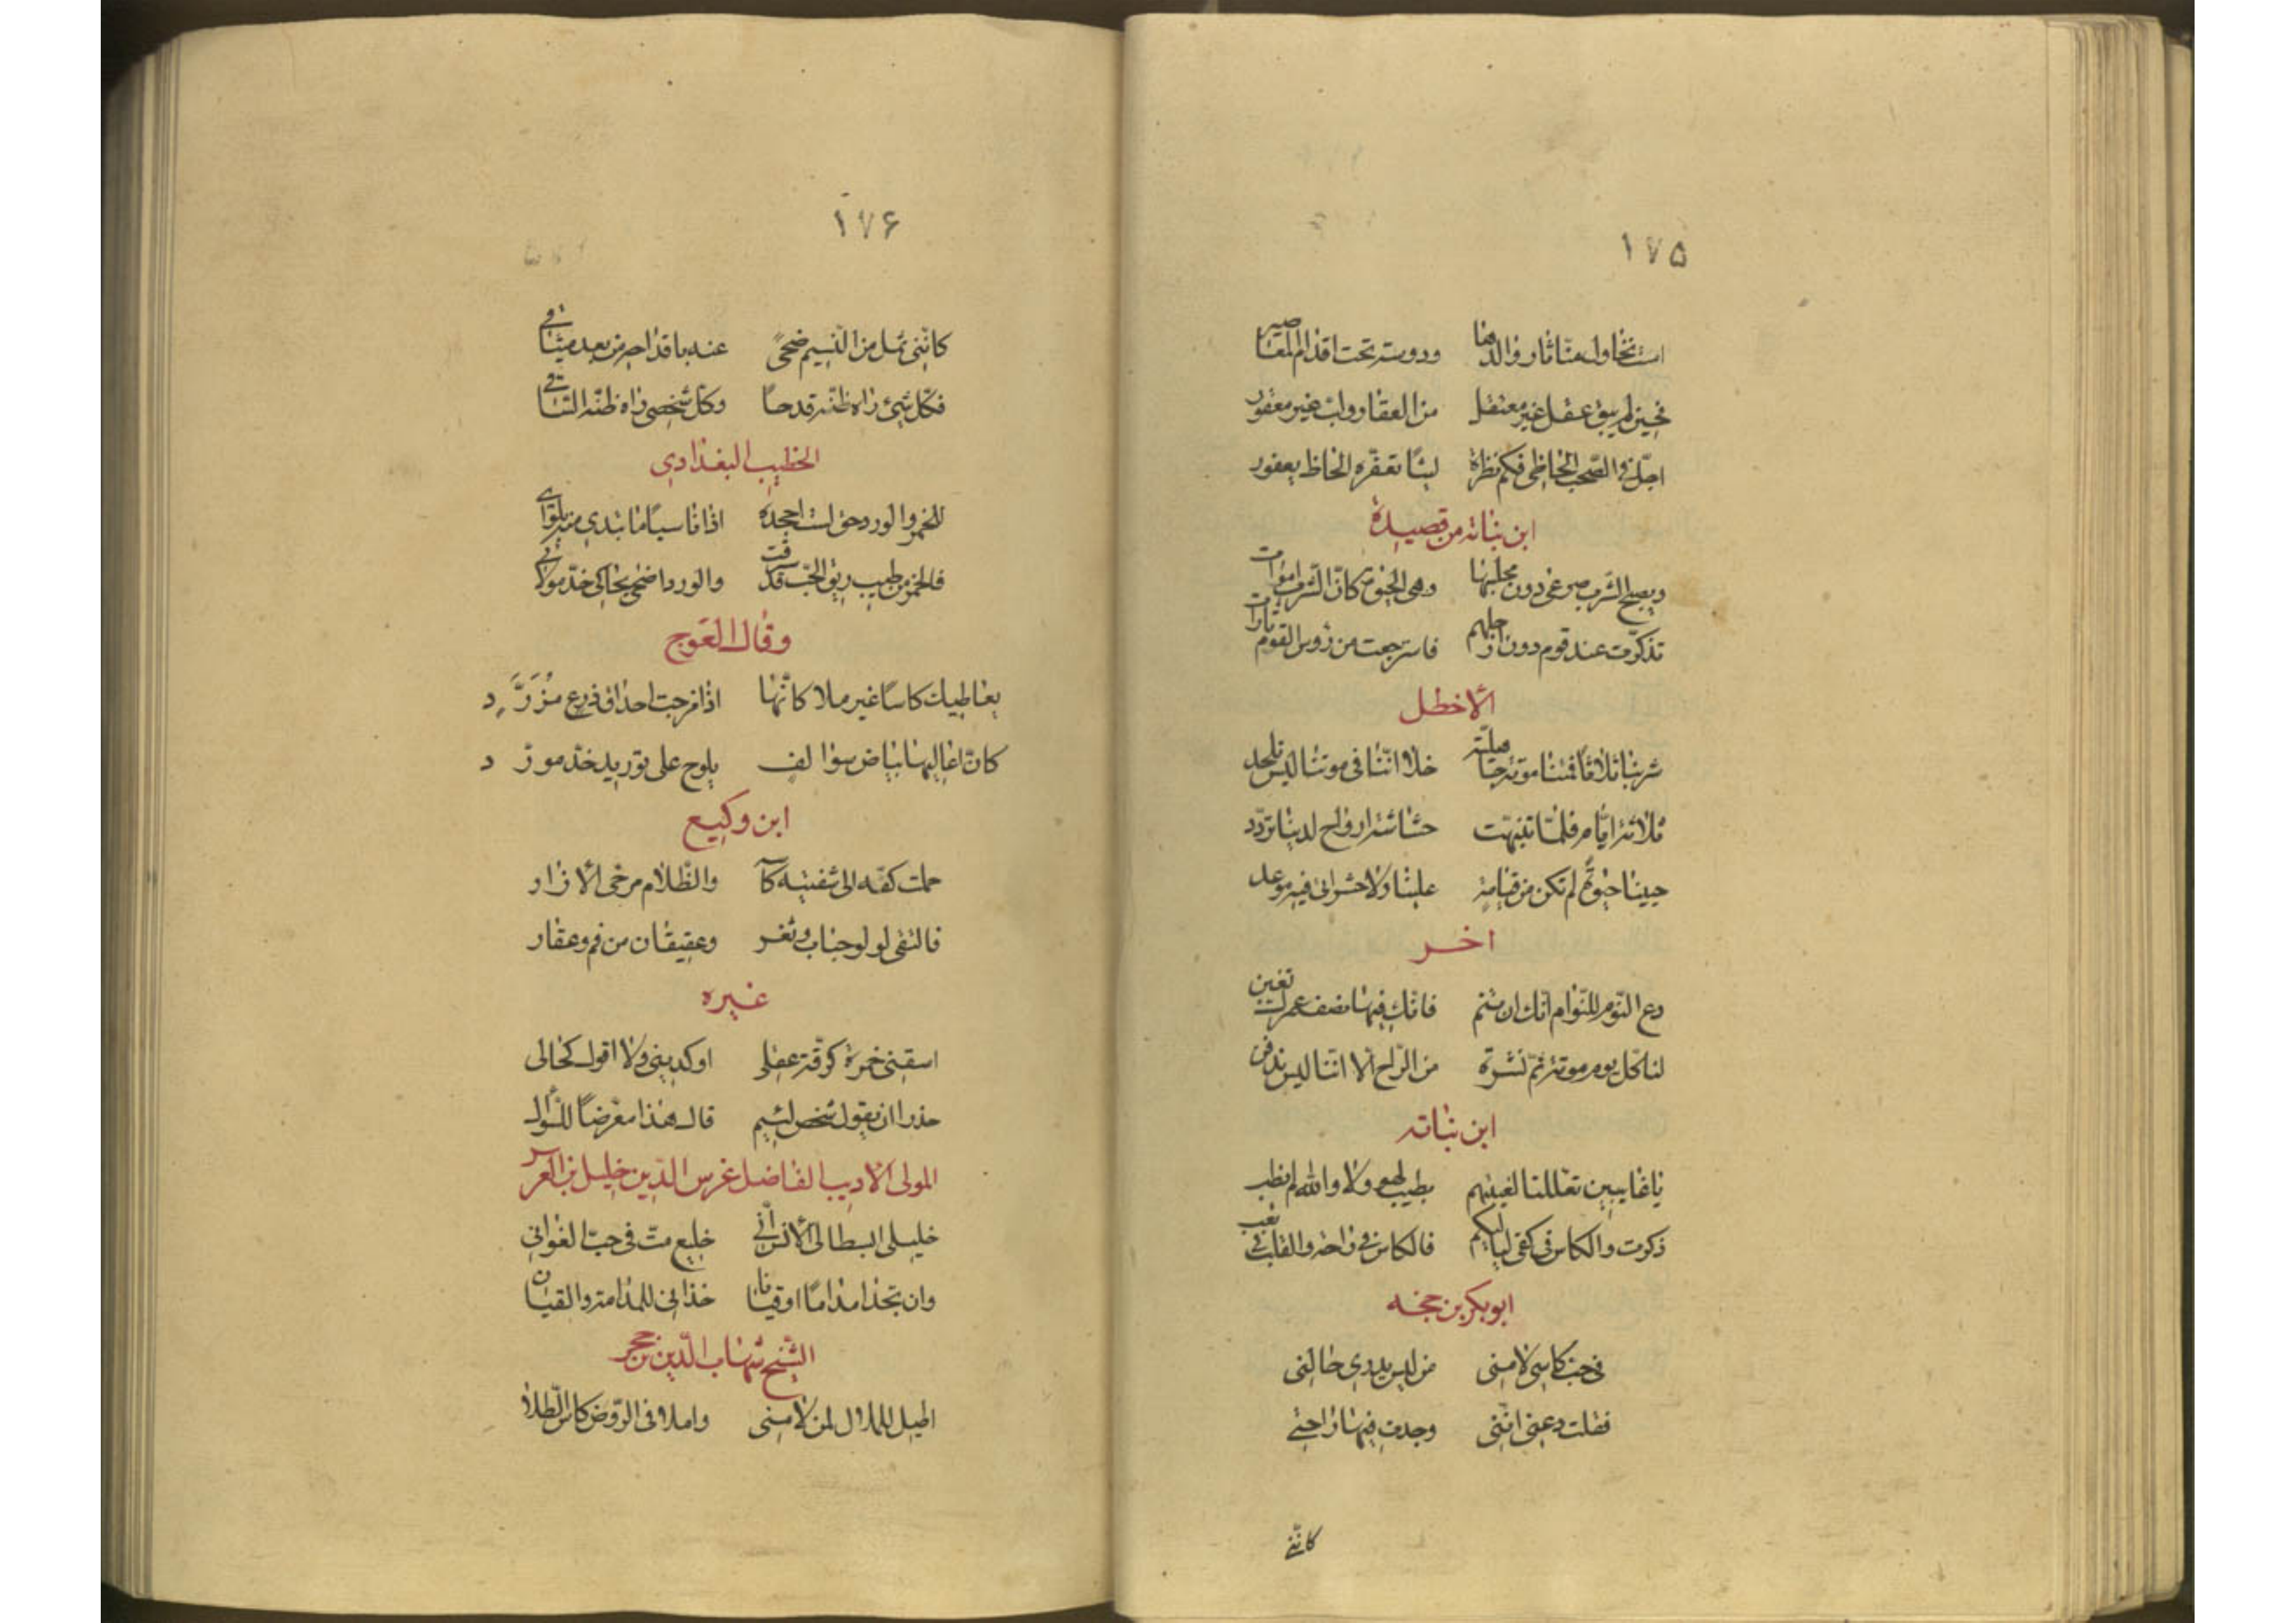 ۱۷۵
ودوست تحت اقدام المعاصير
فحين لم يبق عقل غير معتقل من العقار ولب غير معقور
اجل في الصحب الحاظي فكم نظرة ليثا تعقره الحاظ يعفور
ابن نباته من قصيدة
ويصبح الشرب صرعى دون مجلسها وهى الحيوة كانّ الشرب اموات
تذكرت عند قوم دون ارجلهم فاسترجعت من رؤس القوم ثارات
الأخطل
شربنا فمتنا موتة جاهلية خلا اننا فى موتنا ليس نلحد
ثلاثة ايّام فلمّا تنبهت حشاشة ارواح لدينا تردّد
حيينا حيوة لم تكن من قيامة علينا ولا حشر اتى فيه موعد
اخر
دع النّوم للنّوام انّك ان تنم فانّك فيها نصف عمرك تغبن
لنا كلّ يوم موتة ثمّ نشرة من الرّاح الّا انّنا ليس ندفن
ابن نباته
يا غايبين تعاللنا لغيبتهم بطيب لهو ولا والله لم يطب
ذكرت والكاس فى كفى لياليكم فالكاس في راحة والقلب في تعب
ابو بكر بن حجه
فى حب كاسى لامنى من ليس يدرى حالتى
فقلت دعنى انّنى وجدت فيها راحتي
كانّني
۱۷۶
كانّنى ثمل من النّسيم ضحىً عند
فكلّ شىء راه ظنّه قدحاً وكلّ شخص راه ظنّه السّاقي
الخطيب البغدادي
للخمر والورد حق لست اجحده اذا قاسيا ما تبدى من بلوائي
فالخمر من طيب ريق الحب قد سرقت والورد اضحى يحاكى خدّ مولائي
وقال العوج
يعاطيك كاسًا غير ملا كانّها اذا مزجت احداق درع مزرّد
كانّ اعاليها بياض سوالف يلوح على توريد خدّ مورّد
ابن وكيع
حملت كفّه الى شفتيه كاسه والظّلام مرخى الأزار
فالتقى لولو حباب وثغر وعقيقان من فم وعقار
غيره
اسقنى خمرة كرقّة عقلى او كدينى ولا اقول كحالى
حذرا ان يقول شخص لئيم قال هذا معرّضاً للسّؤال
المولى الأديب الفاضل غرس الدّين خليل بن الغرس
خليلى ابسطا لى الأنس انّي خليع متّ فى حبّ الغوانى
وان تجدا مداماً او قيانا خذانى للمدامة والقيان
الشّيخ شهاب الدّين بن حجر
اطيل الملال لمن لامنى واملا فى الرّوض كاس الطّلا